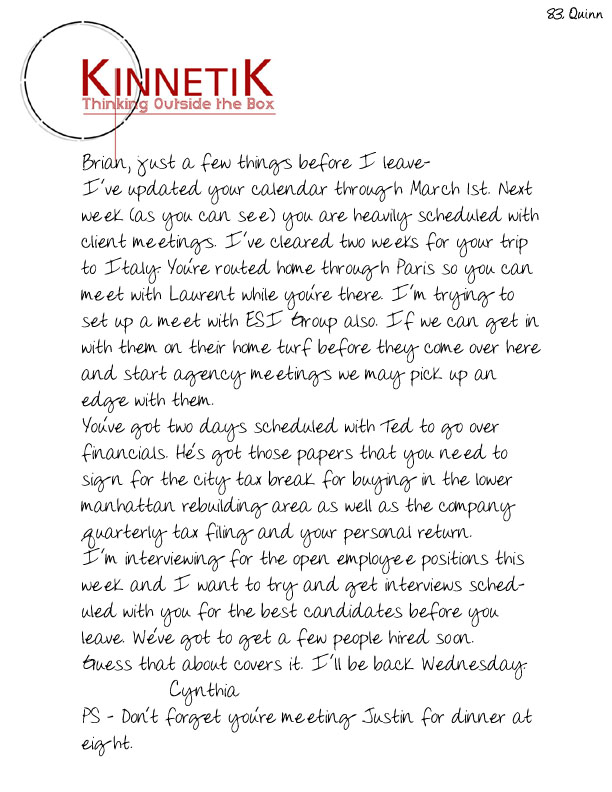 83. Quinn
KINNETIK
Thinking Outside the Box
Brian, just a few things before I leave-
I've updated your calendar through March 1st. Next
week (as you can see) you are heavily scheduled with
client meetings. I've cleared two weeks for your trip
to Italy. You're routed home through Paris so you can
meet with Laurent while you're there. I'm trying to
set up a meet with ESI Group also. If we can get in
with them on their home turf before they come over here
and start agency meetings we may pick up an
edge with them.
You've got two days scheduled with Ted to go over
financials. He's got those papers that you need to
sign for the city tax break for buying in the lower
manhattan rebuilding area as well as the company
quarterly tax filing and your personal return.
I'm interviewing for the open employee positions this
week and I want to try and get interviews sched-
uled with you for the best candidates before you
leave. We've got to get a few people hired soon.
Guess that about covers it. I'll be back Wednesday.
Cynthia
PS - Don't forget you're meeting Justin for dinner at
eight.